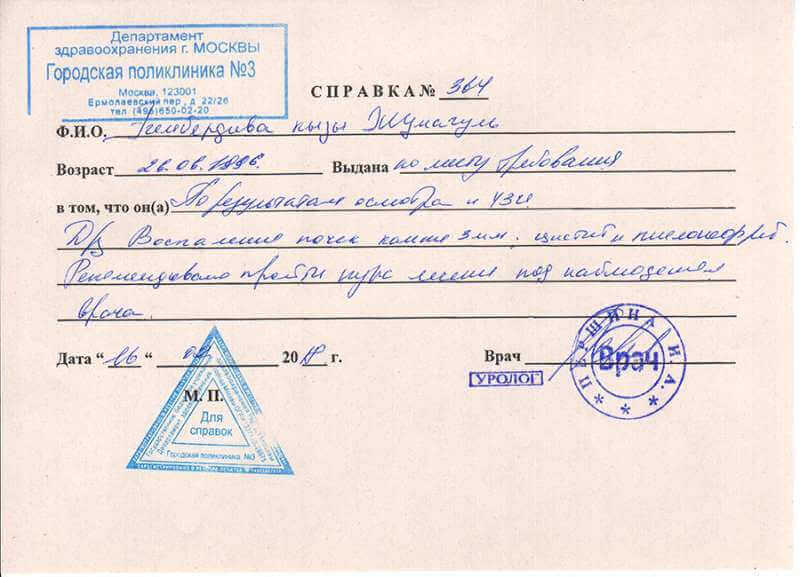 Департамент
здравоохранения г. МОСКВЫ
Городская поликлиника №3
Москва, 123001
Ермолаевский пер., д. 22/26
тел (495)650-02-20
СПРАВКА № 364
Ф.И.О. кызы Жумагуль
Возраст 26.06.1996. Выдана по месту требования
в том, что он(а) По результатам осмотра и УЗИ
Д/з Воспаление почек камни 3мм. цистит и пиелонефрит.
Рекомендовано пройти курс лечения под наблюдением
врача.
Дата “ 06 “ 20 г.
Врач
УРОЛОГ
ПЕРШИНА И.А.
Врач
М. П.
Для
справок
Городская поликлиника №3